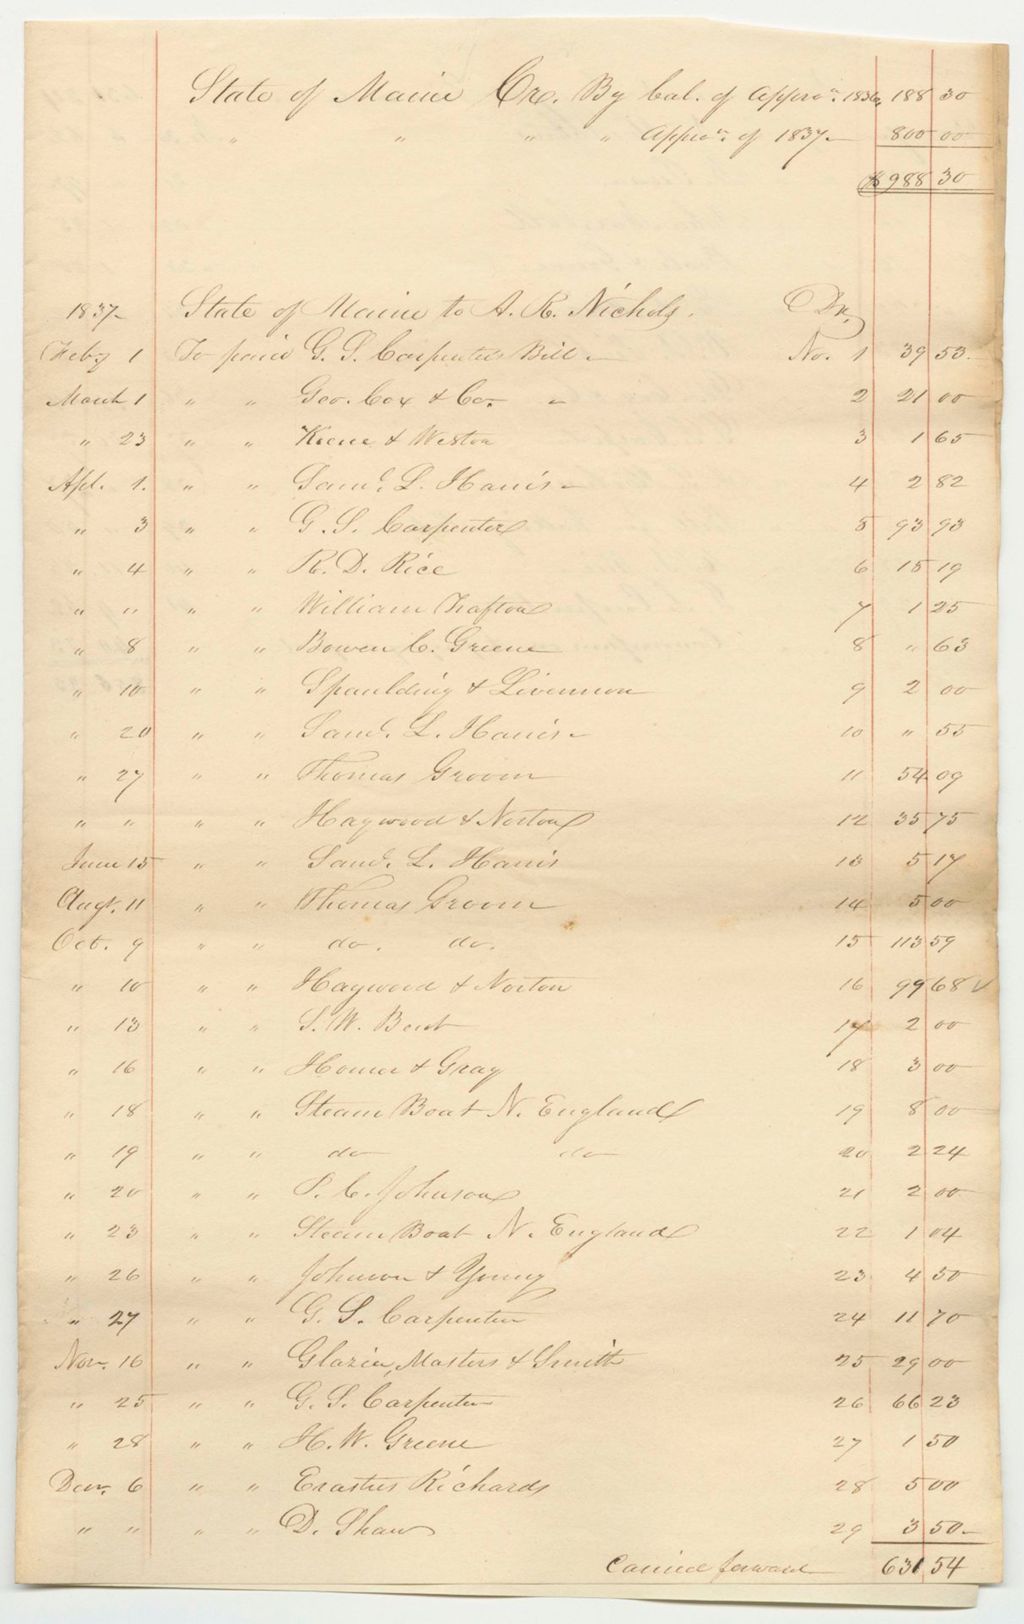 State of Maine Cr. By bal. of Appron. 1836, 188 30
" " " " Appron. of 1837 - 800 00
$988 30
1837 - State of Maine to A. R. Nichols. Dr.
Feby 1 To paid G. S. Carpenters Bill - No. 1 39 53
March 1 " " Geo. Cox & Co. - 2 21 00
" 23 " " Keene & Weston 3 1 65
Apl. 1. " " Saml. L. Harris - 4 2 82
" 3 " " G. S. Carpenter 5 93 93
" 4 " " R. D. Rice 6 15 19
" " " " William Trafton 7 1 25
" 8 " " Bowen C. Greene 8 " 63
" 10 " " Spaulding & Livermore 9 2 00
" 20 " " Saml. L. Harris - 10 " 55
" 27 " " Thomas Groom 11 54 09
" " " " Haywood & Norton 12 35 75
June 15 " " Saml. L. Harris 13 5 17
Augt. 11 " " Thomas Groom 14 5 00
Oct. 9 " " do. do. 15 113 59
" 10 " " Haywood & Norton 16 99 68 √
" 13 " " S. W. 17 2 00
" 16 " " Homer & Gray 18 3 00
" 18 " " Steam Boat N. England 19 8 00
" 19 " " do do 20 2 24
" 20 " " P. C. Johnson 21 2 00
" 23 " " Steam Boat N. England 22 1 04
" 26 " " Johnson & Young 23 4 50
" 27 " " G. S. Carpenter 24 11 70
Nov. 16 " " Glazier, Masters & Smith 25 29 00
" 25 " " G. S. Carpenter 26 66 23
" 28 " " H. W. Greene 27 1 50
Decr. 6 " " Erastus Richards 28 5 00
" " " " D. Shaw 29 3 50 -
Carried forward 631 54